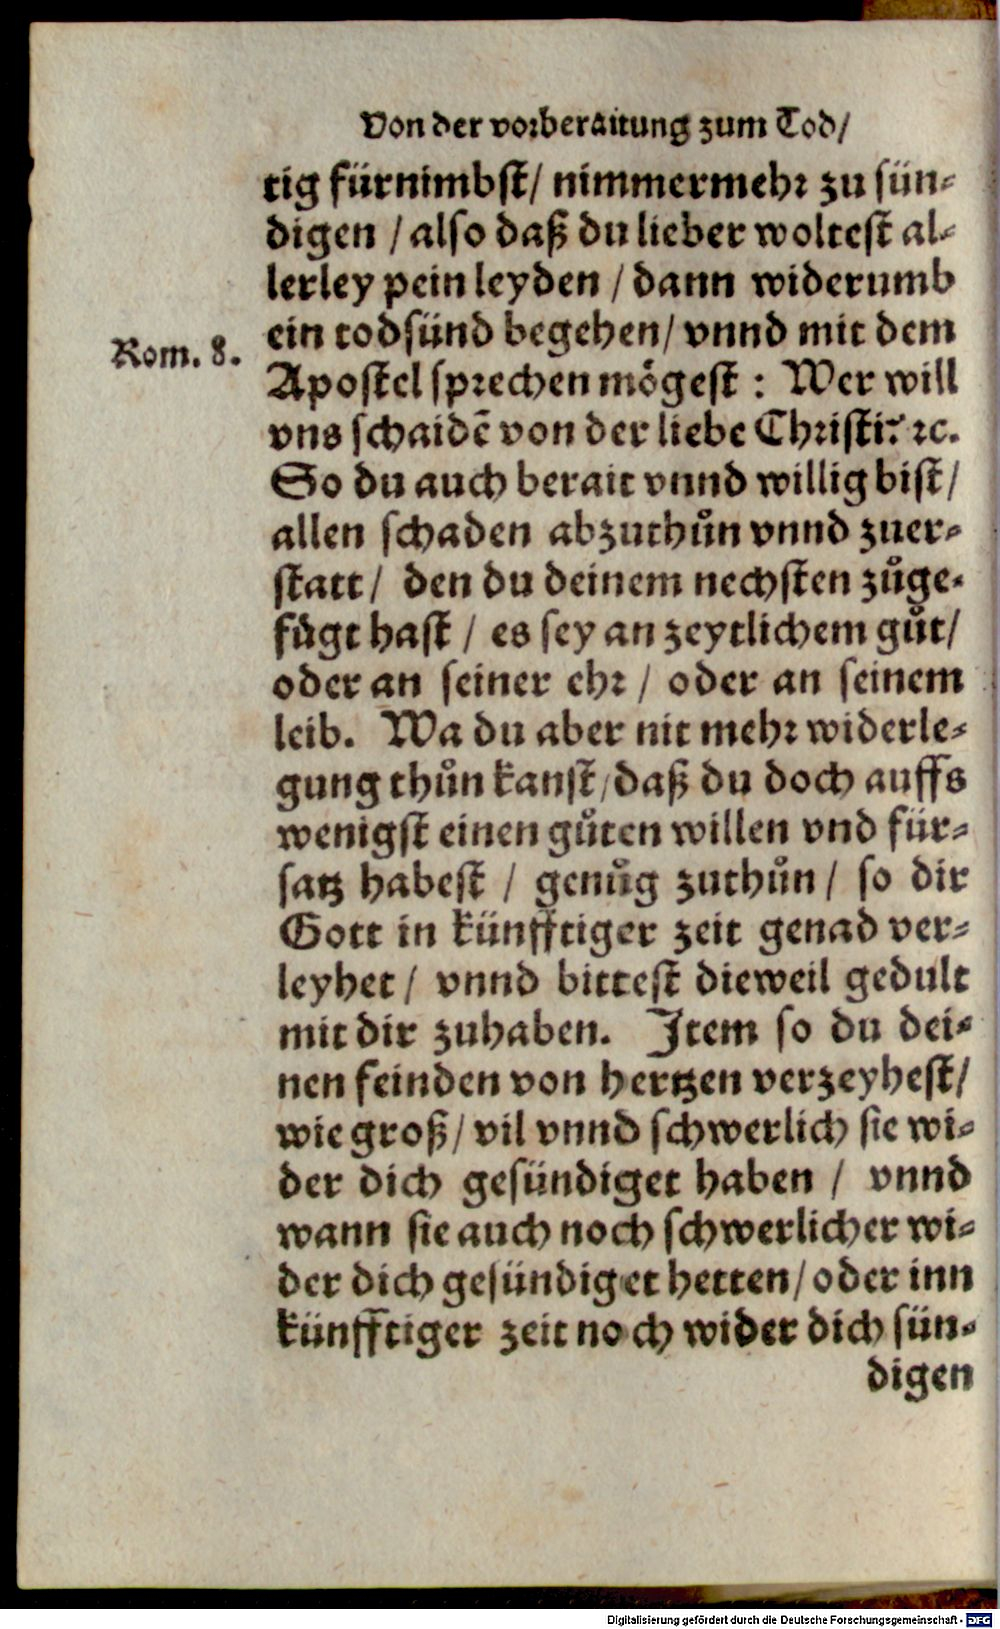 Von der vorberaitung zum Tod/
tig fürnimbst/ nimmermehr zu sün-
digen / also daß du lieber woltest al-
lerley pein leyden / dann widerumb
ein todsünd begehen/ vnnd mit dem
Rom. 8.
Apostel sprechen mögest : Wer will
vns schaidē von der liebe Christi? ꝛc.
So du auch berait vnnd willig bist/
allen schaden abzuthůn vnnd zuer-
statt/ den du deinem nechsten zůge-
fügt hast / es sey an zeytlichem gůt/
oder an seiner ehr / oder an seinem
leib. Wa du aber nit mehr widerle-
gung thůn kanst/ daß du doch auffs
wenigst einen gůten willen vnd für-
satz habest / genůg zuthůn / so dir
Gott in künfftiger zeit genad ver-
leyhet / vnnd bittest dieweil gedult
mit dir zuhaben. Item so du dei-
nen feinden von hertzen verzeyhest/
wie groß/ vil vnnd schwerlich sie wi-
der dich gesündiget haben / vnnd
wann sie auch noch schwerlicher wi-
der dich gesündiget hetten/ oder inn
künfftiger zeit noch wider dich sün-
digen
Digitalisierung gefördert durch die Deutsche Forschungsgemeinschaft - DFG